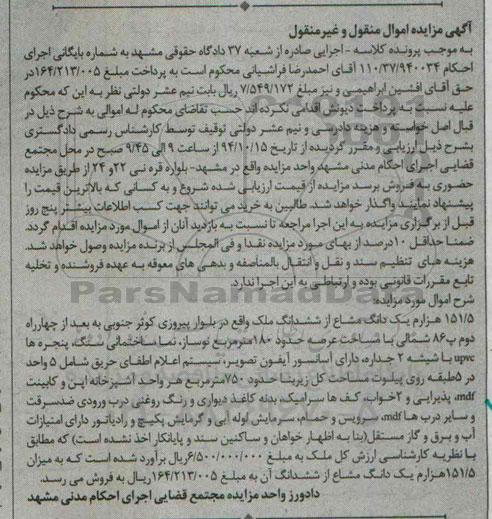 آگهی مزایده اموال منقول و غیرمنقول
به موجب پرونده کلاسه - اجرایی صادره از شعبه ۳۷ دادگاه حقوقی مشهد به شماره بایگانی اجرای
احکام ۱۱۰/۳۷/۹۴۰۰۳۴ آقای احمدرضا فراشیانی محکوم است به پرداخت مبلغ ۱۶۴/۲۱۳/۰۰۵ در
حق آقای افشین ابراهیمی و نیز مبلغ ۷/۵۴۹/۱۷۲ ریال بابت نیم عشر دولتی نظر به این که محکوم
علیه نسبت به پرداخت دیونش اقدامی نکرده اند حسب تقاضای محکوم له اموالی به شرح ذیل در
قبال اصل خواسته و هزینه دادرسی و نیم عشر دولتی توقیف توسط کارشناس رسمی دادگستری
بشرح ذیل ارزیابی و مقرر گردیده از تاریخ ۹۴/۱۰/۱۵ از ساعت ۹ الی ۹/۴۵ صبح در محل مجتمع
قضایی اجرای احکام مدنی مشهد واحد مزایده واقع در مشهد- بلوار قره نی ۲۲ و ۲۴ از طریق مزایده
حضوری به فروش برسد مزایده از قیمت ارزیابی شده شروع و به کسانی که بالاترین قیمت را
پیشنهاد نمایند واگذار خواهد شد. طالبین به خرید می توانند جهت کسب اطلاعات بیشتر پنج روز
قبل از برگزاری مزایده به این اجرا مراجعه تا نسبت به بازدید آنان از اموال مورد مزایده اقدام گردد.
ضمنا حداقل ۱۰درصد از بهای مورد مزایده نقدا و فی المجلس از برنده مزایده وصول خواهد شد.
هزینه های تنظیم سند و نقل و انتقال بالمناصفه و بدهی های معوقه به عهده فروشنده و تخلیه
تابع مقررات قانونی بوده و ارتباطی به این اجرا ندارد.
ParsNamadData
شرح اموال مورد مزایده:
۱۵۱/۵ هزارم یک دانگ مشاع از ششدانگ ملک واقع در بلوار پیروزی کوثر جنوبی به بعد از چهارراه
دوم پ۸۶ شمالی با مساحت عرصه حدود ۱۸۰مترمربع نوساز، نما ساختمانی سنگ، پنجره ها
upvc با شیشه ۲ جداره، دارای آسانسور آیفون تصویر، سیستم اعلام اطفای حریق شامل ۵ واحد
در ۵طبقه روی پیلوت مساحت کل زیربنا حدود ۷۵۰مترمربع هر واحد آشپزخانه اپن و کابینت
mdf، پذیرایی و ۲خواب، کف ها سرامیک، بدنه کاغذ دیواری و رنگ روغنی درب ورودی ضدسرقت
و سایر درب ها mdf، سرویس و حمام، سرمایش لوله آبی و گرمایش پکیج و رادیاتور دارای امتیازات
آب و برق و گاز مستقل(بنا به اظهار خواهان و ساکنین سند و پایانکار اخذ نشده است) که مطابق
با نظریه کارشناسی ارزش کل ملک به مبلغ ۶/۵۰۰/۰۰۰/۰۰۰ریال برآورد شده است که به میزان
۱۵۱/۵هزارم یک دانگ مشاع از ششدانگ آن به مبلغ ۱۶۴/۲۱۳/۰۰۵ریال به فروش می رسد.
دادورز واحد مزایده مجتمع قضایی اجرای احکام مدنی مشهد